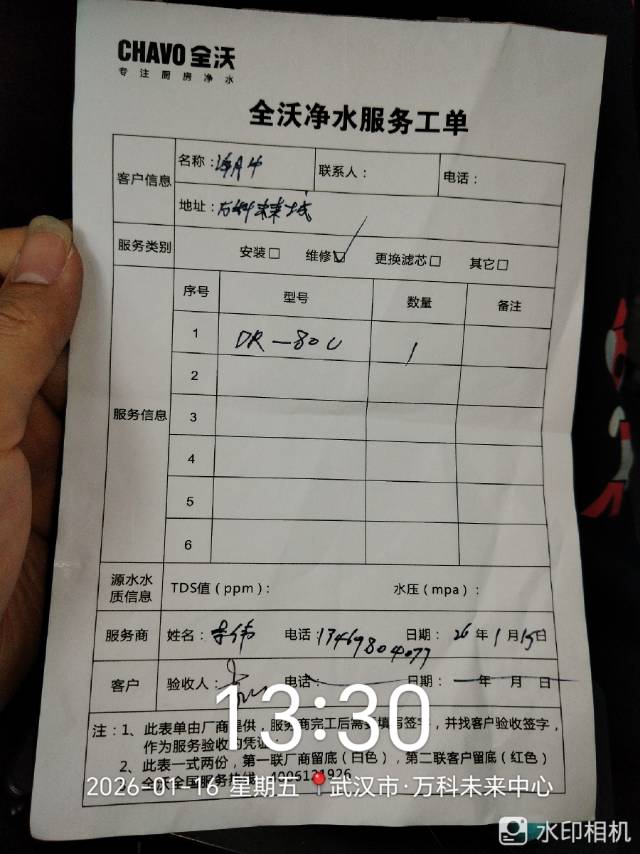 CHAVO 全沃
专注厨房净水
全沃净水服务工单
客户信息
名称：
联系人：
电话：
地址：万科未来城
服务类别
安装□ 维修□ 更换滤芯□ 其它□
服务信息
序号 型号 数量 备注
1 DR-80C 1
2
3
4
5
6
源水水质信息
TDS值（ppm）： 水压（mpa）：
服务商 姓名：李伟 电话：13469804077 日期：26年1月15日
客户 验收人： 电话： 日期： 年 月 日
注：1、此表单由厂商提供，服务商完工后需要填写签字，并找客户验收签字，
作为服务验收的凭证；
2、此表一式两份，第一联厂商留底（白色），第二联客户留底（红色）
全沃全国服务热线：4006121926
13:30
2026-01-16 星期五 武汉市·万科未来中心
水印相机